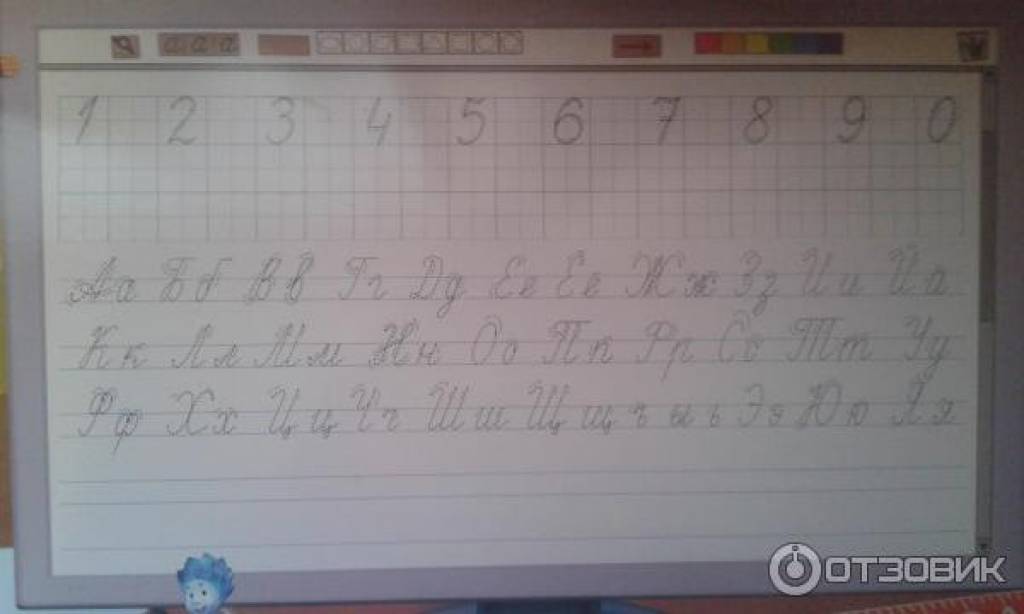 а а а
1 2 3 4 5 6 7 8 9 0
Аа Бб Вв Гг Дд Ее Ее Жж Зз Ии Йй
Кк Лл Мм Нн Оо Пп Рр Сс Тт Уу
Фф Хх Цц Чч Шш Щщ ъ ы ь Ээ Юю Яя
ОТЗОВИК